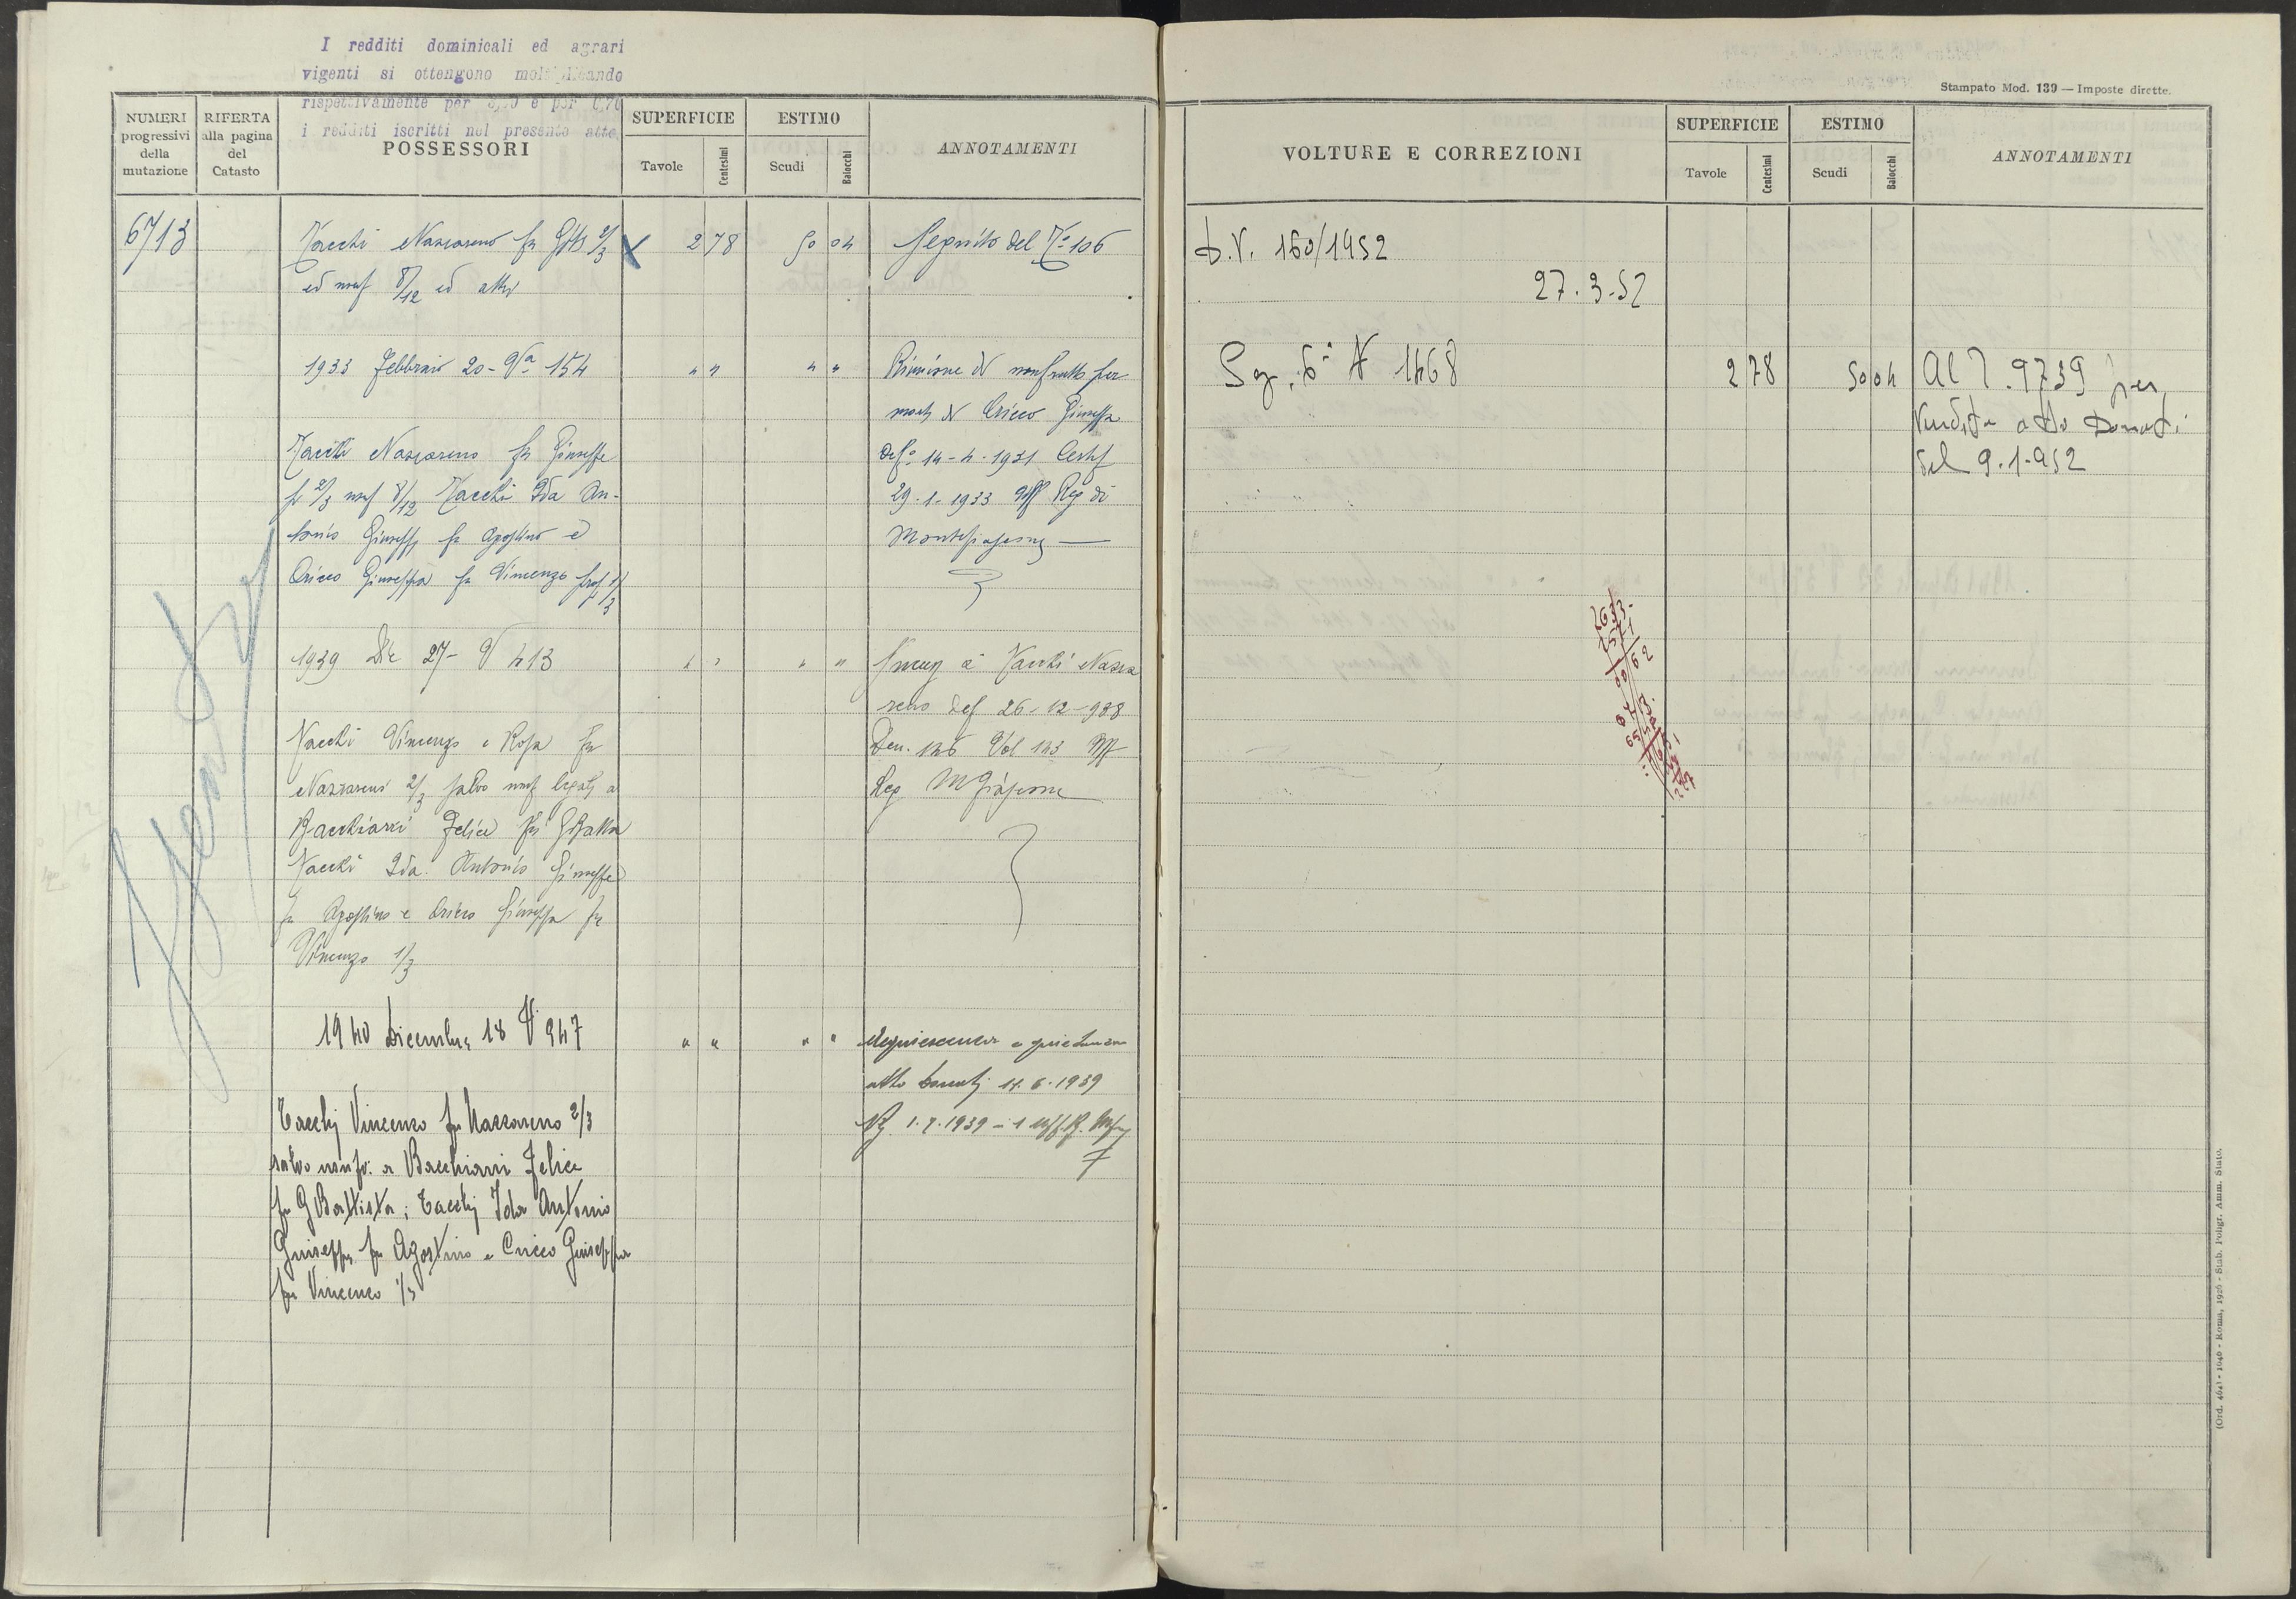 I redditi dominicali ed agrari
vigenti si ottengono moltiplicando
rispettivamente per e per 0,70
i redditi iscritti nel presente atto.
NUMERI progressivi della mutazione
RIFERTA alla pagina del Catasto
POSSESSORI
SUPERFICIE
Tavole
Centesimi
ESTIMO
Scudi
Baiocchi
ANNOTAMENTI
6713
Tacchi Nazzareno fu GBta 2/3 2 78 50 04 Seguito del To 106
ed usuf 8/12 ed altri
1933 Febbraio 20 - Va 154 " " " " Riunione di usufrutto per
morte di Cricco Giuseppa
Tacchi Nazzareno fu Giuseppe def. 14-4-1931 Certif
p 2/3 usuf 8/12 Tacchi Ida An- 29-1-1933 Uff Reg di
tonio Giuseppe fu Agostino e Montefiascone
Cricco Giuseppa fu Vincenzo prop 1/3
1939 Dic 27 - V 413 " " " " Succ a Tacchi Nazza
reno def 26-12-938
Tacchi Vincenzo e Rosa fu Den. 146 Vol 143 Uff
Nazzareno 2/3 salvo usuf legato a Reg MFiascone
Bacchiarri Felice fu GBatta
Tacchi Ida Antonio Giuseppe
fu Agostino e Cricco Giuseppa fu
Vincenzo 1/3
1940 Dicembre 18 V 947 " " " " Acquiescenza e quietanza
atto Donati 14.6.1939
Tacchi Vincenzo fu Nazzareno 2/3 1.7.1939 - 1 Uff. R.
salvo usuf. a Bacchiarri Felice
fu GBattista; Tacchi Ida Antonio
Giuseppe fu Agostino e Cricco Giuseppa
fu Vincenzo 1/3
Stampato Mod. 139 — Imposte dirette.
VOLTURE E CORREZIONI
SUPERFICIE
Tavole
Centesimi
ESTIMO
Scudi
Baiocchi
ANNOTAMENTI
D.V. 160/1952
27.3-52
Sez. 6a N 1468 2 78 50 04 Al T. 9739 per
Vendita atto Donati
del 9.1.952
(Ord. 4641 - 1646 - Roma, 1926 - Stab. Poligr. Amm. Stato.